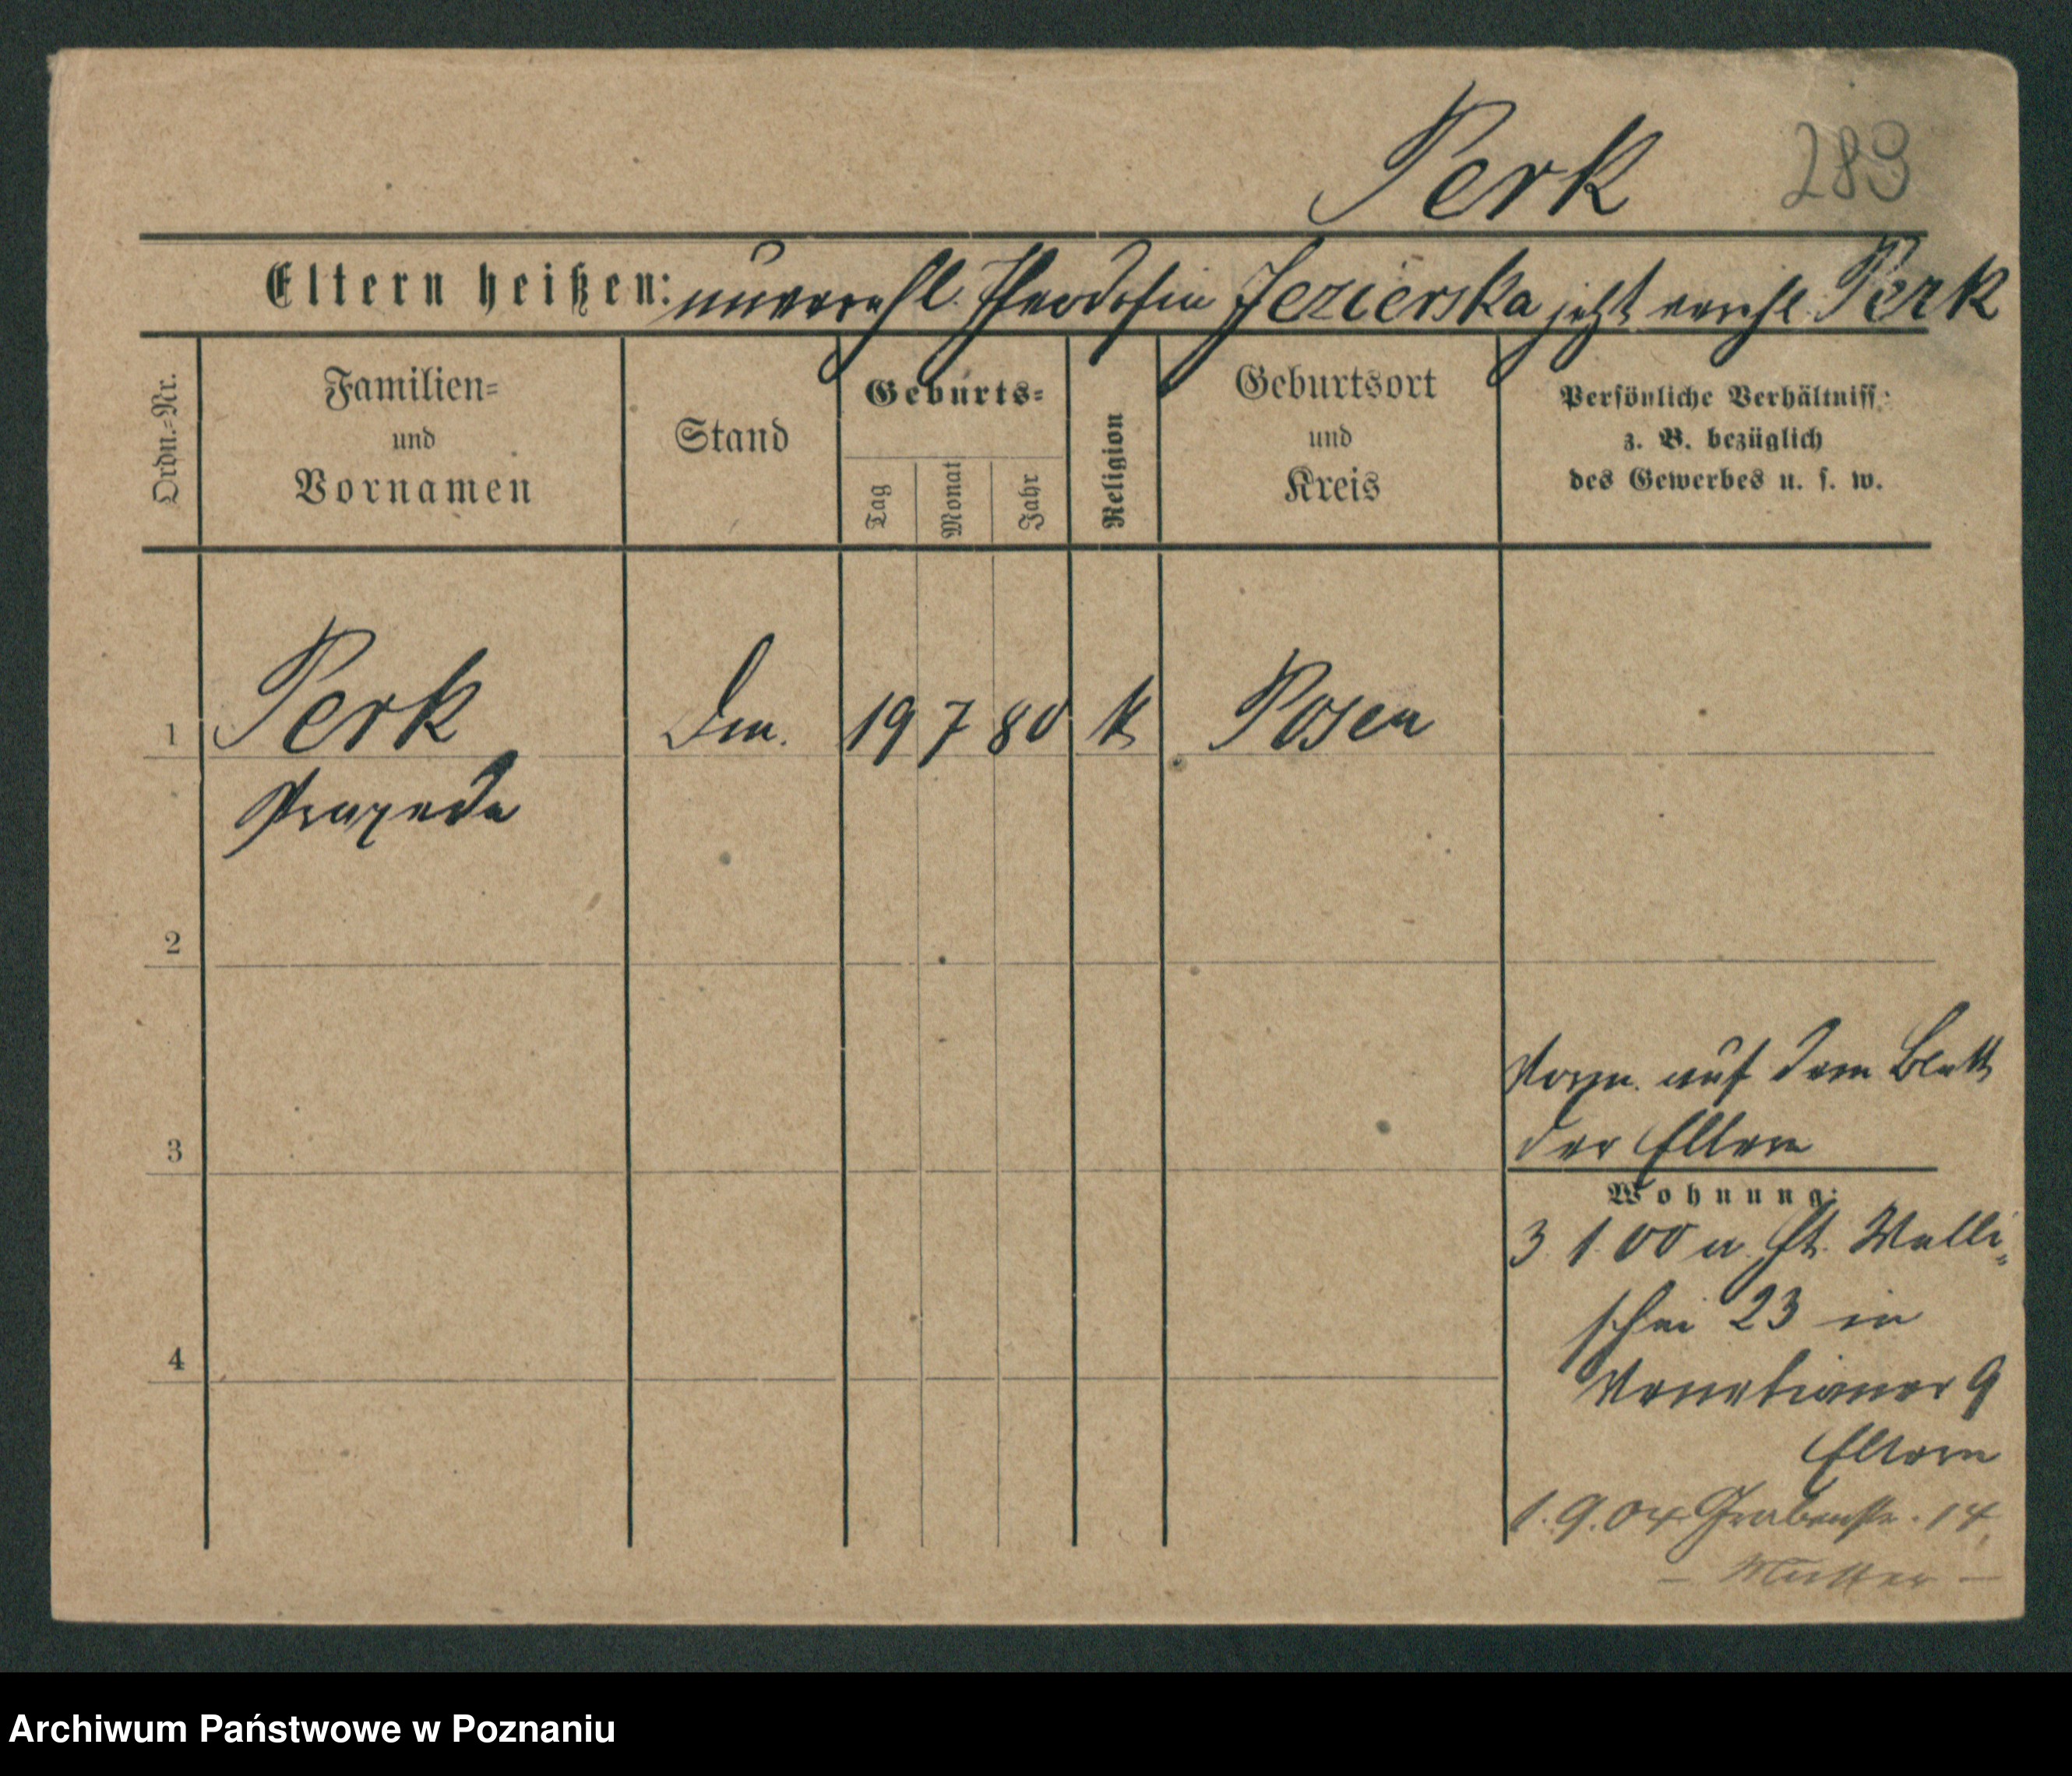 Perk 289
Eltern heißen: unverehl. Theodosia Jezierska jetzt verehl. Perk
Ordn.=Nr.
Familien=
und
Vornamen
Stand
Geburts=
Tag
Monat
Jahr
Religion
Geburtsort
und
Kreis
Persönliche Verhältniss.
z. B. bezüglich
des Gewerbes u. s. w.
1 Perk 19 7 80 k Posen
Praxeda
2
Vorm. auf dem Blatt
3 der Eltern
Wohnung:
3 1 00 a. Walli=
schei 23 in
4 Venetianer 9
Eltern
1.9.04 Grabenstr. 14
– Mutter –
Archiwum Państwowe w Poznaniu